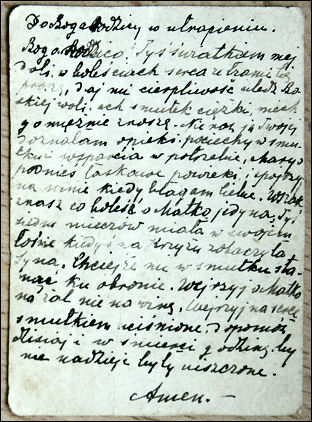 Do Boga Rodzicy w utrapieniu.
Bogo Rodzico! Tyś światłem mej
doli, w boleściach serca ze łzami Cię
proszę, daj mi cierpliwość uledz Bo
skiej woli, ach smutek ciężki, niech
go mężnie znoszę. Nie raz ja Twojej
doznałam opieki, pociechy w smu
tku i wsparcia w potrzebie, chciej o
podnieś łaskawe powieki, i spojrzyj
na mnie kiedy błagam Ciebie. Wszak
znasz co boleść, o Matko jedyna, Tyś
siedm mieczów miała w swojem
łonie kiedyś na krzyżu zobaczyła
Syna. Chciejże mi w smutku sta-
nąć ku obronie. Wejrzyj o Matko
na żal nie na winę, Wejrzyj na serce
smutkiem ściśnione. Dopomóż
dzisiaj i w śmierci godzinę, by
me nadzieje były ziszczone.
Amen. -